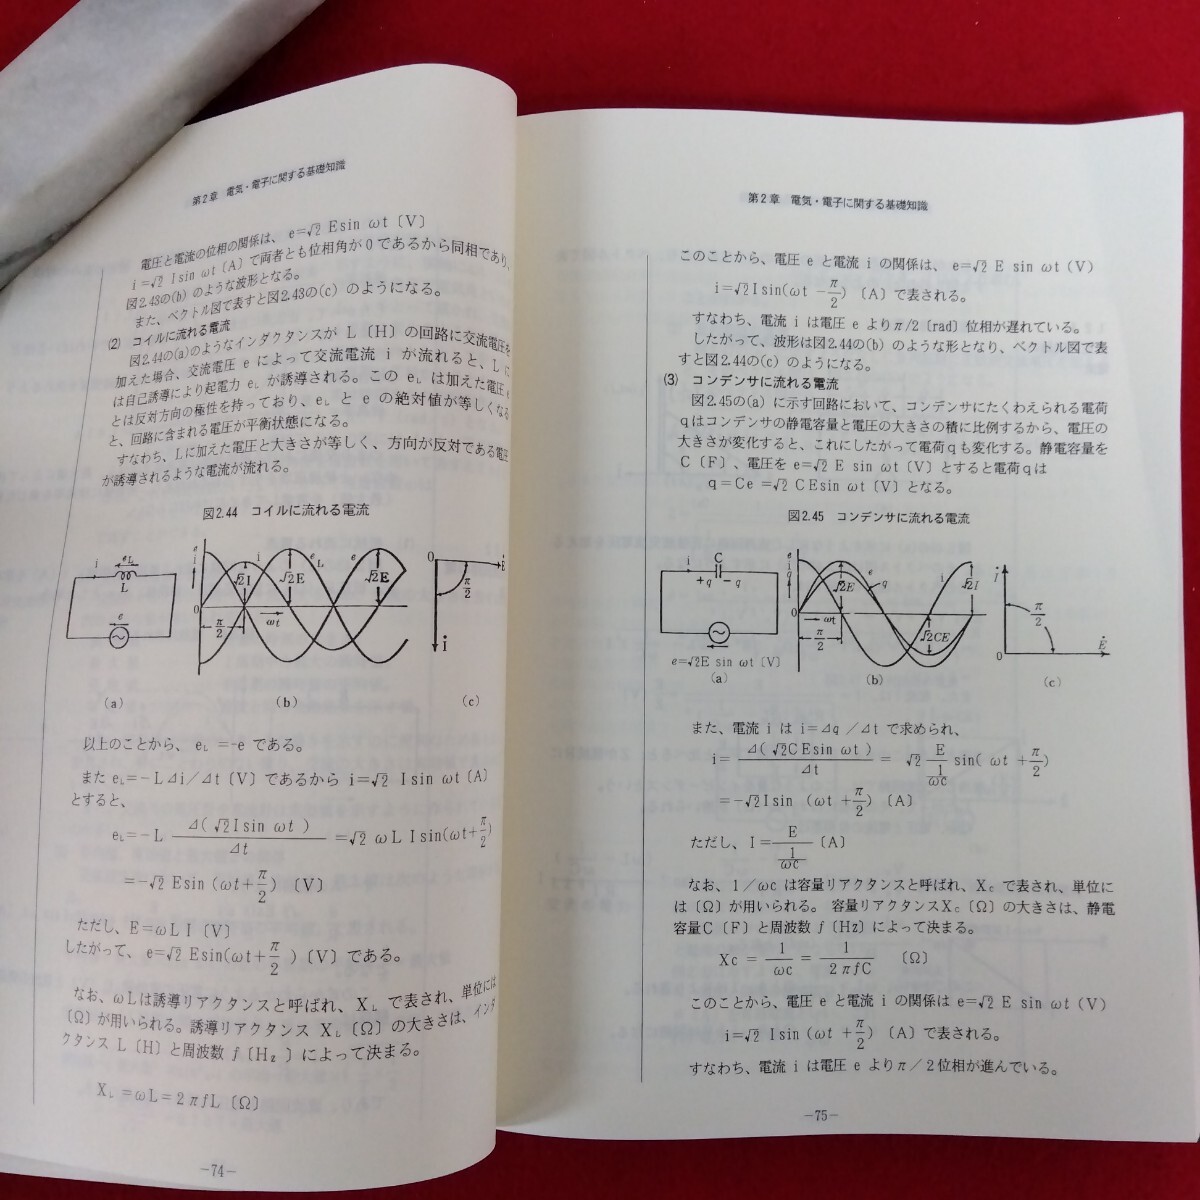 第2章 電気・電子に関する基礎知識
電圧と電流の位相の関係は、 e=√2 Esin ωt〔V〕
i=√2 Isin ωt〔A〕で両者とも位相角が0であるから同相であり、
図2.43の(b) のような波形となる。
また、ベクトル図で表すと図2.43の(c) のようになる。
(2) コイルに流れる電流
図2.44の(a)のようなインダクタンスが L〔H〕の回路に交流電圧を
加えた場合、交流電圧 e によって交流電流 i が流れると、Lに
は自己誘導により起電力 eL が誘導される。この eL は加えた電圧e
とは反対方向の極性を持っており、eL と e の絶対値が等しくなる
と、回路に含まれる電圧が平衡状態になる。
すなわち、Lに加えた電圧と大きさが等しく、方向が反対である電圧
が誘導されるような電流が流れる。
図2.44 コイルに流れる電流
i eL L e
e i i eL e √2I √2E √2E 0 π/2 ωt
0 Ė π/2 İ
(a) (b) (c)
以上のことから、 eL =-e である。
また eL=-LΔi/Δt〔V〕であるから i=√2 Isin ωt〔A〕
とすると、
eL=-L Δ(√2Isin ωt)/Δt =√2 ωL Isin(ωt+π/2)
=-√2 Esin (ωt+π/2)〔V〕
ただし、E=ωLI〔V〕
したがって、 e=√2 Esin(ωt+π/2 )〔V〕である。
なお、ωLは誘導リアクタンスと呼ばれ、XL で表され、単位には
〔Ω〕が用いられる。誘導リアクタンス XL〔Ω〕の大きさは、インダ
クタンス L〔H〕と周波数 f〔Hz〕によって決まる。
XL =ωL=2πfL〔Ω〕
-74-
第2章 電気・電子に関する基礎知識
このことから、電圧 e と電流 i の関係は、 e=√2 E sin ωt(V)
i=√2Isin(ωt -π/2)〔A〕で表される。
すなわち、電流 i は電圧 e よりπ/2〔rad〕位相が遅れている。
したがって、波形は図2.44の(b) のような形となり、ベクトル図で表
すと図2.44の(c) のようになる。
(3) コンデンサに流れる電流
図2.45の(a) に示す回路において、コンデンサにたくわえられる電荷
qはコンデンサの静電容量と電圧の大きさの積に比例するから、電圧の
大きさが変化すると、これにしたがって電荷qも変化する。静電容量を
C〔F〕、電圧を e=√2 E sin ωt〔V〕とすると電荷qは
q=Ce =√2 CEsin ωt〔V〕となる。
図2.45 コンデンサに流れる電流
i C +q -q
e=√2E sin ωt〔V〕
e i q e q i √2E √2I √2CE 0 ωt π/2
İ π/2 0 Ė
(a) (b) (c)
また、電流 i は i=Δq /Δt で求められ、
i= Δ( √2CEsin ωt )/Δt = √2 E/(1/ωc) sin( ωt +π/2)
=-√2Isin (ωt +π/2)〔A〕
ただし、I= E/(1/ωc)〔A〕
なお、1/ωc は容量リアクタンスと呼ばれ、Xc で表され、単位に
は〔Ω〕が用いられる。 容量リアクタンスXc〔Ω〕の大きさは、静電
容量C〔F〕と周波数 f〔Hz〕によって決まる。
Xc = 1/ωc = 1/2πfC 〔Ω〕
このことから、電圧 e と電流 i の関係は e=√2 E sin ωt(V)
i=√2 Isin (ωt +π/2)〔A〕で表される。
すなわち、電流 i は電圧 e よりπ/2位相が進んでいる。
-75-